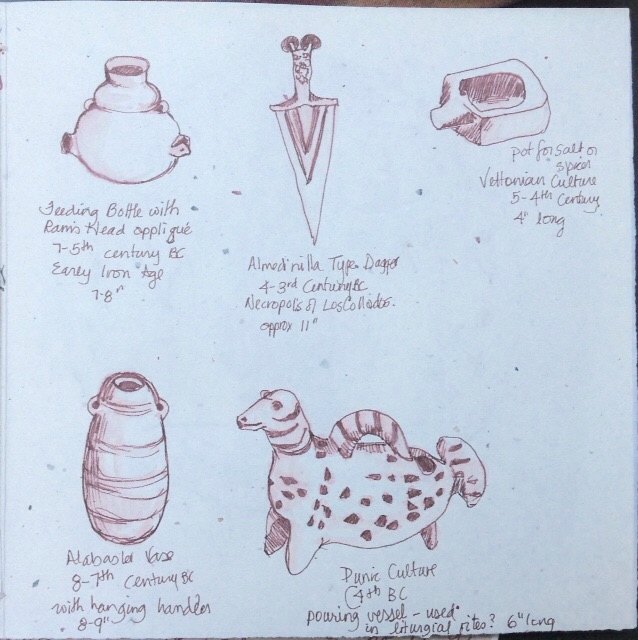 Feeding Bottle with
Ram's Head appliqué
7-5th century BC
Early Iron Age
7-8"
Almedinilla Type Dagger
4-3rd Century BC
Necropolis of Los Collados.
approx 11"
pot for salt or
spices
Vettonian Culture
5-4th Century
4" long
Alabaster Vase
8-7th Century BC
with hanging handles
8-9"
Punic Culture
C4th BC
pouring vessel - used
in liturgical rites? 6" long